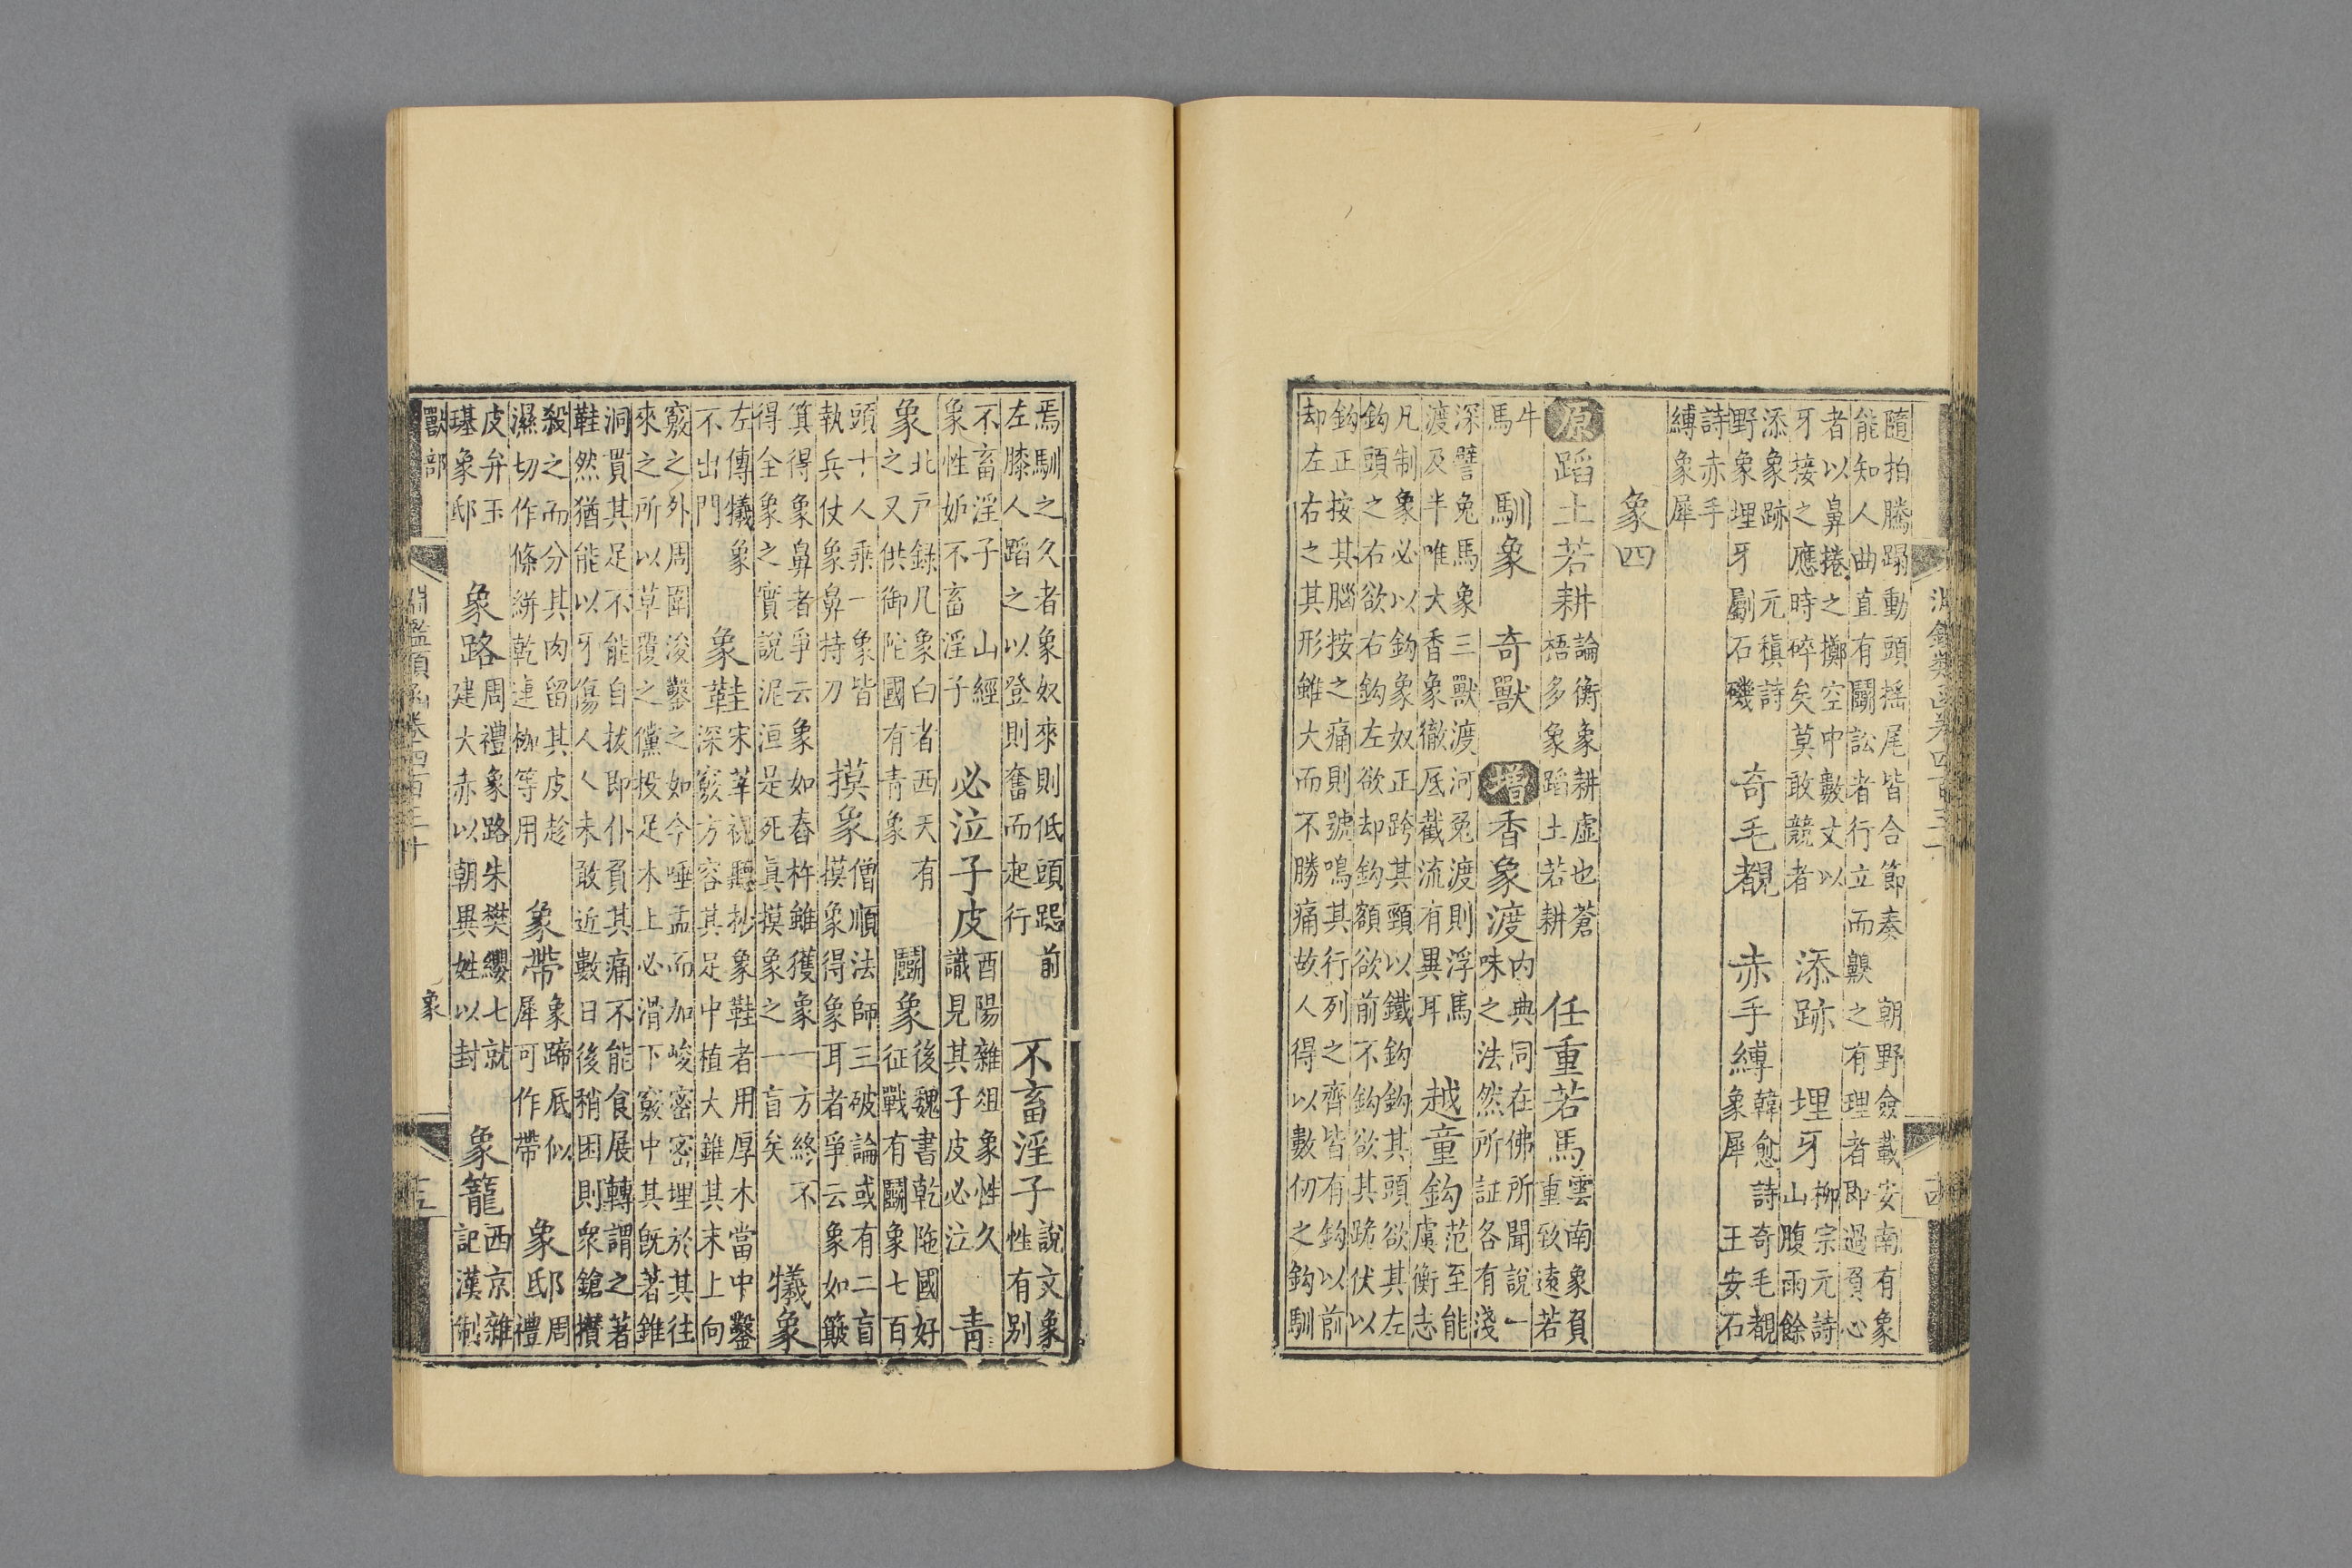 淵鑑類函卷四百三十
隨拍騰蹋動頭搖尾皆合節奏 朝野僉載安南有象
能知人曲直有鬭訟者行立而齅之有理者即過負心
者以鼻捲之擲空中數丈以
牙接之應時碎矣莫敢競者
添跡
埋牙
柳宗元詩
山腹雨餘
添象跡元稹詩
野象埋牙斸石磯
奇毛覩
赤手縛
韓愈詩奇毛覩
象犀 王安石
詩赤手
縛象犀
象四
原 蹈土若耕
論衡象耕虛也蒼
梧多象蹈土若耕
任重若馬
雲南象負
重致遠若
牛
馬
馴象 奇獸 增 香象渡
內典同在佛所聞說一
味之法然所証各有淺
深譬兔馬象三獸渡河兔渡則浮馬
渡及半唯大香象徹底截流有異耳
越童鈎
范至能
虞衡志
凡制象必以鈎象奴正跨其頸以鐵鈎鈎其頭欲其左
鈎頭之右欲右鈎左欲却鈎額欲前不鈎欲其跪伏以
鈎正按其腦按之痛則號鳴其行列之齊皆有鈎以前
却左右之其形雖大而不勝痛故人得以數仞之鈎馴
焉馴之久者象奴來則低頭跽前
左膝人蹈之以登則奮而起行
不畜淫子
說文象
性有別
不畜淫子 山經
象性妒不畜淫子
必泣子皮
酉陽雜俎象性久
識見其子皮必泣
青
象
北戶錄凡象白者西天有
之又供御陀國有青象
鬭象
後魏書乾陁國好
征戰有鬭象七百
頭十人乘一象皆
執兵仗象鼻持刀
摸象
僧順法師三破論或有二盲
摸象得象耳者爭云象如簸
箕得象鼻者爭云象如舂杵雖獲象一方終不
得全象之實說泥洹是死眞摸象之一盲矣
犧象
左傳犧象
不出門
象鞋
宋莘視聽抄象鞋者用厚木當中鑿
深竅方容其足中植大錐其末上向
竅之外周圍浚鑿之如今唾盂而加峻密密埋於其往
來之所以草覆之儻投足木上必滑下竅中其旣著錐
洞貫其足不能自拔即仆負其痛不能食展轉謂之著
鞋然猶能以牙傷人人未敢近數日後稍困則衆鎗攢
殺之而分其肉留其皮趁
濕切作條絣乾連枷等用
象帶
象蹄底似
犀可作帶
象邸
周
禮
皮弁玉
璂象邸
象路
周禮象路朱樊纓七就
建大赤以朝異姓以封
象籠
西京雜
記漢制
獸部 象
淵鑑類函卷四百三十